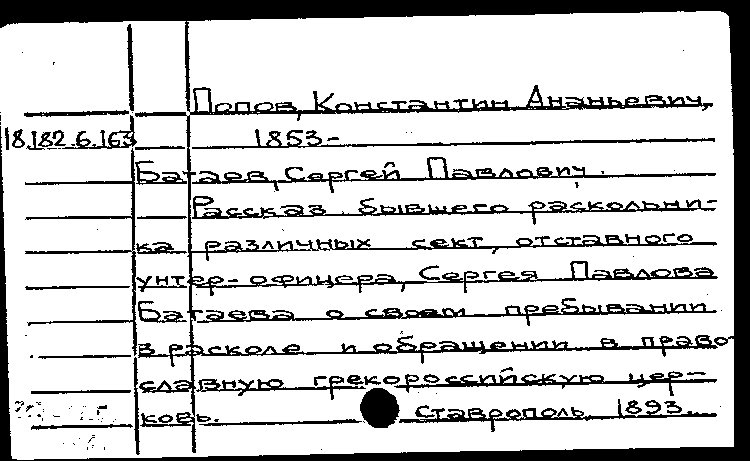 Попов, Константин Ананьевич,
18.182.6.163 1853-
Батаев, Сергей Павлович.
Рассказ бывшего раскольни-
ка различных сект, отставного
унтер-офицера, Сергея Павлова
Батаева о своем пребывании
в расколе и обращении в право-
славную грекороссийскую цер-
ковь. Ставрополь, 1893.